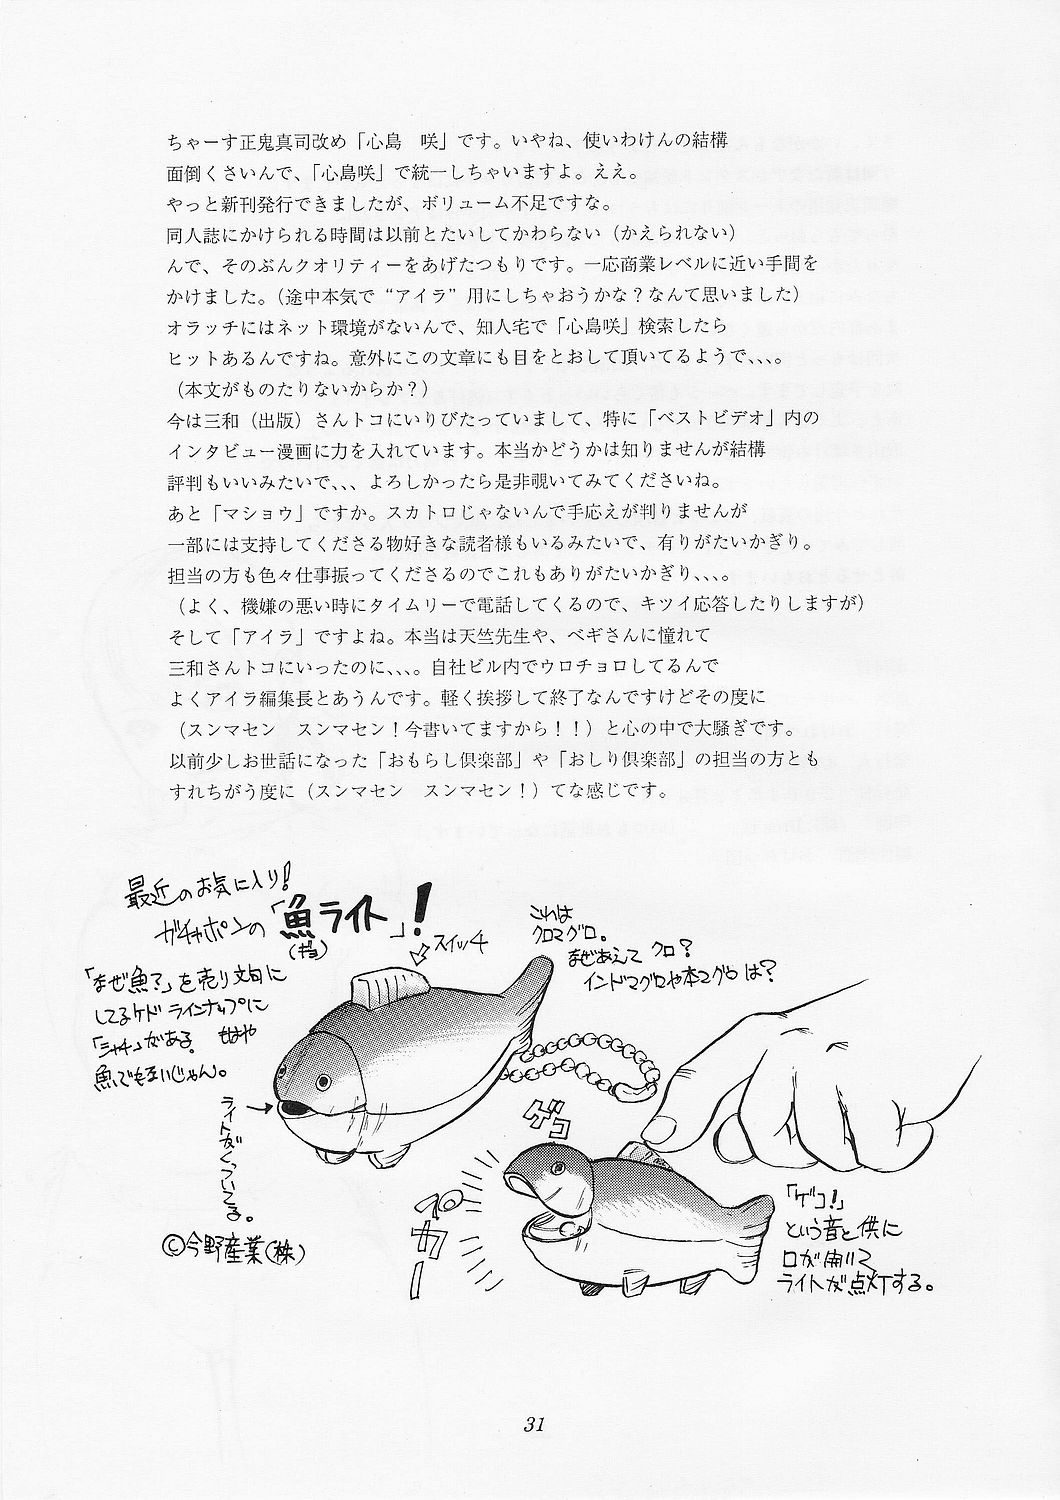 ちゃーす正鬼真司改め「心島　咲」です。いやね、使いわけんの結構
面倒くさいんで、「心島咲」で統一しちゃいますよ。ええ。
やっと新刊発行できましたが、ボリューム不足ですな。
同人誌にかけられる時間は以前とたいしてかわらない（かえられない）
んで、そのぶんクオリティーをあげたつもりです。一応商業レベルに近い手間を
かけました。（途中本気で“アイラ”用にしちゃおうかな？なんて思いました）
オラッチにはネット環境がないんで、知人宅で「心島咲」検索したら
ヒットあるんですね。意外にこの文章にも目をとおして頂いてるようで、、、。
（本文がものたりないからか？）
今は三和（出版）さんトコにいりびたっていまして、特に「ベストビデオ」内の
インタビュー漫画に力を入れています。本当かどうかは知りませんが結構
評判もいいみたいで、、、よろしかったら是非覗いてみてくださいね。
あと「マショウ」ですか。スカトロじゃないんで手応えが判りませんが
一部には支持してくださる物好きな読者様もいるみたいで、有りがたいかぎり。
担当の方も色々仕事振ってくださるのでこれもありがたいかぎり、、、。
（よく、機嫌の悪い時にタイムリーで電話してくるので、キツイ応答したりしますが）
そして「アイラ」ですよね。本当は天竺先生や、ベギさんに憧れて
三和さんトコにいったのに、、、。自社ビル内でウロチョロしてるんで
よくアイラ編集長とあうんです。軽く挨拶して終了なんですけどその度に
（スンマセン　スンマセン！今書いてますから！！）と心の中で大騒ぎです。
以前少しお世話になった「おもらし倶楽部」や「おしり倶楽部」の担当の方とも
すれちがう度に（スンマセン　スンマセン！）てな感じです。
最近のお気に入り！
ガチャポンの「魚ライト」！
(ギョ)
スイッチ
これは
クロマグロ。
なぜあえて クロ？
インドマグロや本マグロは？
「なぜ魚？」を売り文句に
してるケド ラインナップに
「シャチ」がある。 もはや
魚でもないじゃん。
ライトがくっついてる。
©今野産業(株)
ゲコ
ペカー
「ゲコ！」
という音と供に
口が開いて
ライトが点灯する。
31